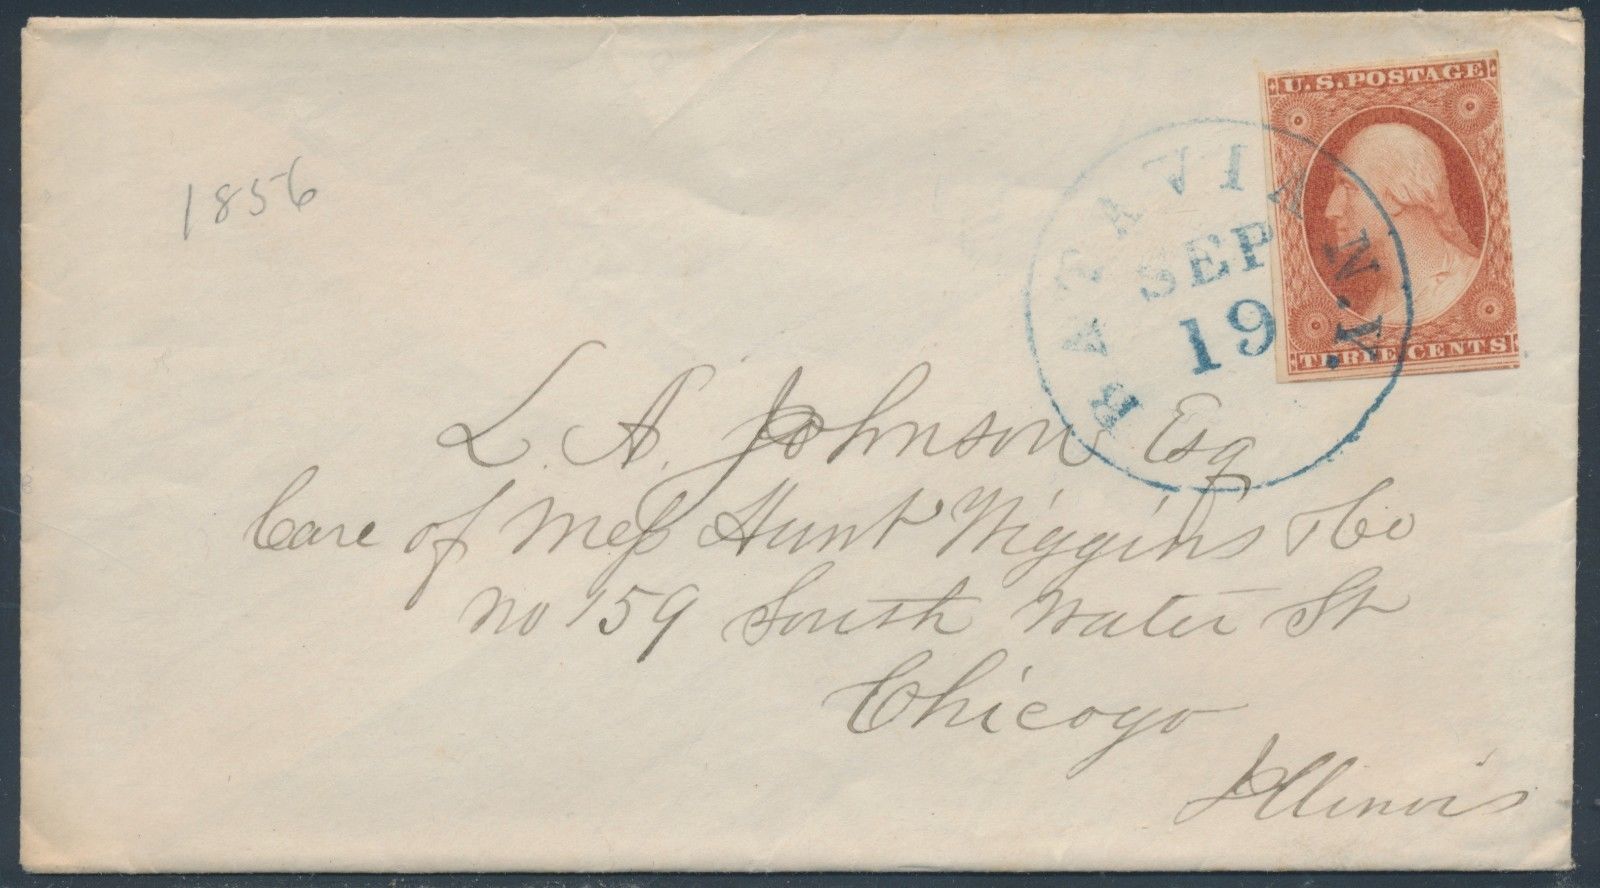 U.S. POSTAGE
THREE CENTS
BATAVIA N.Y.
SEP
19
1856
L. A. Johnson Esq
Care of Mess Hunt Wiggins & Co
No 159 South Water St
Chicago
Illinois